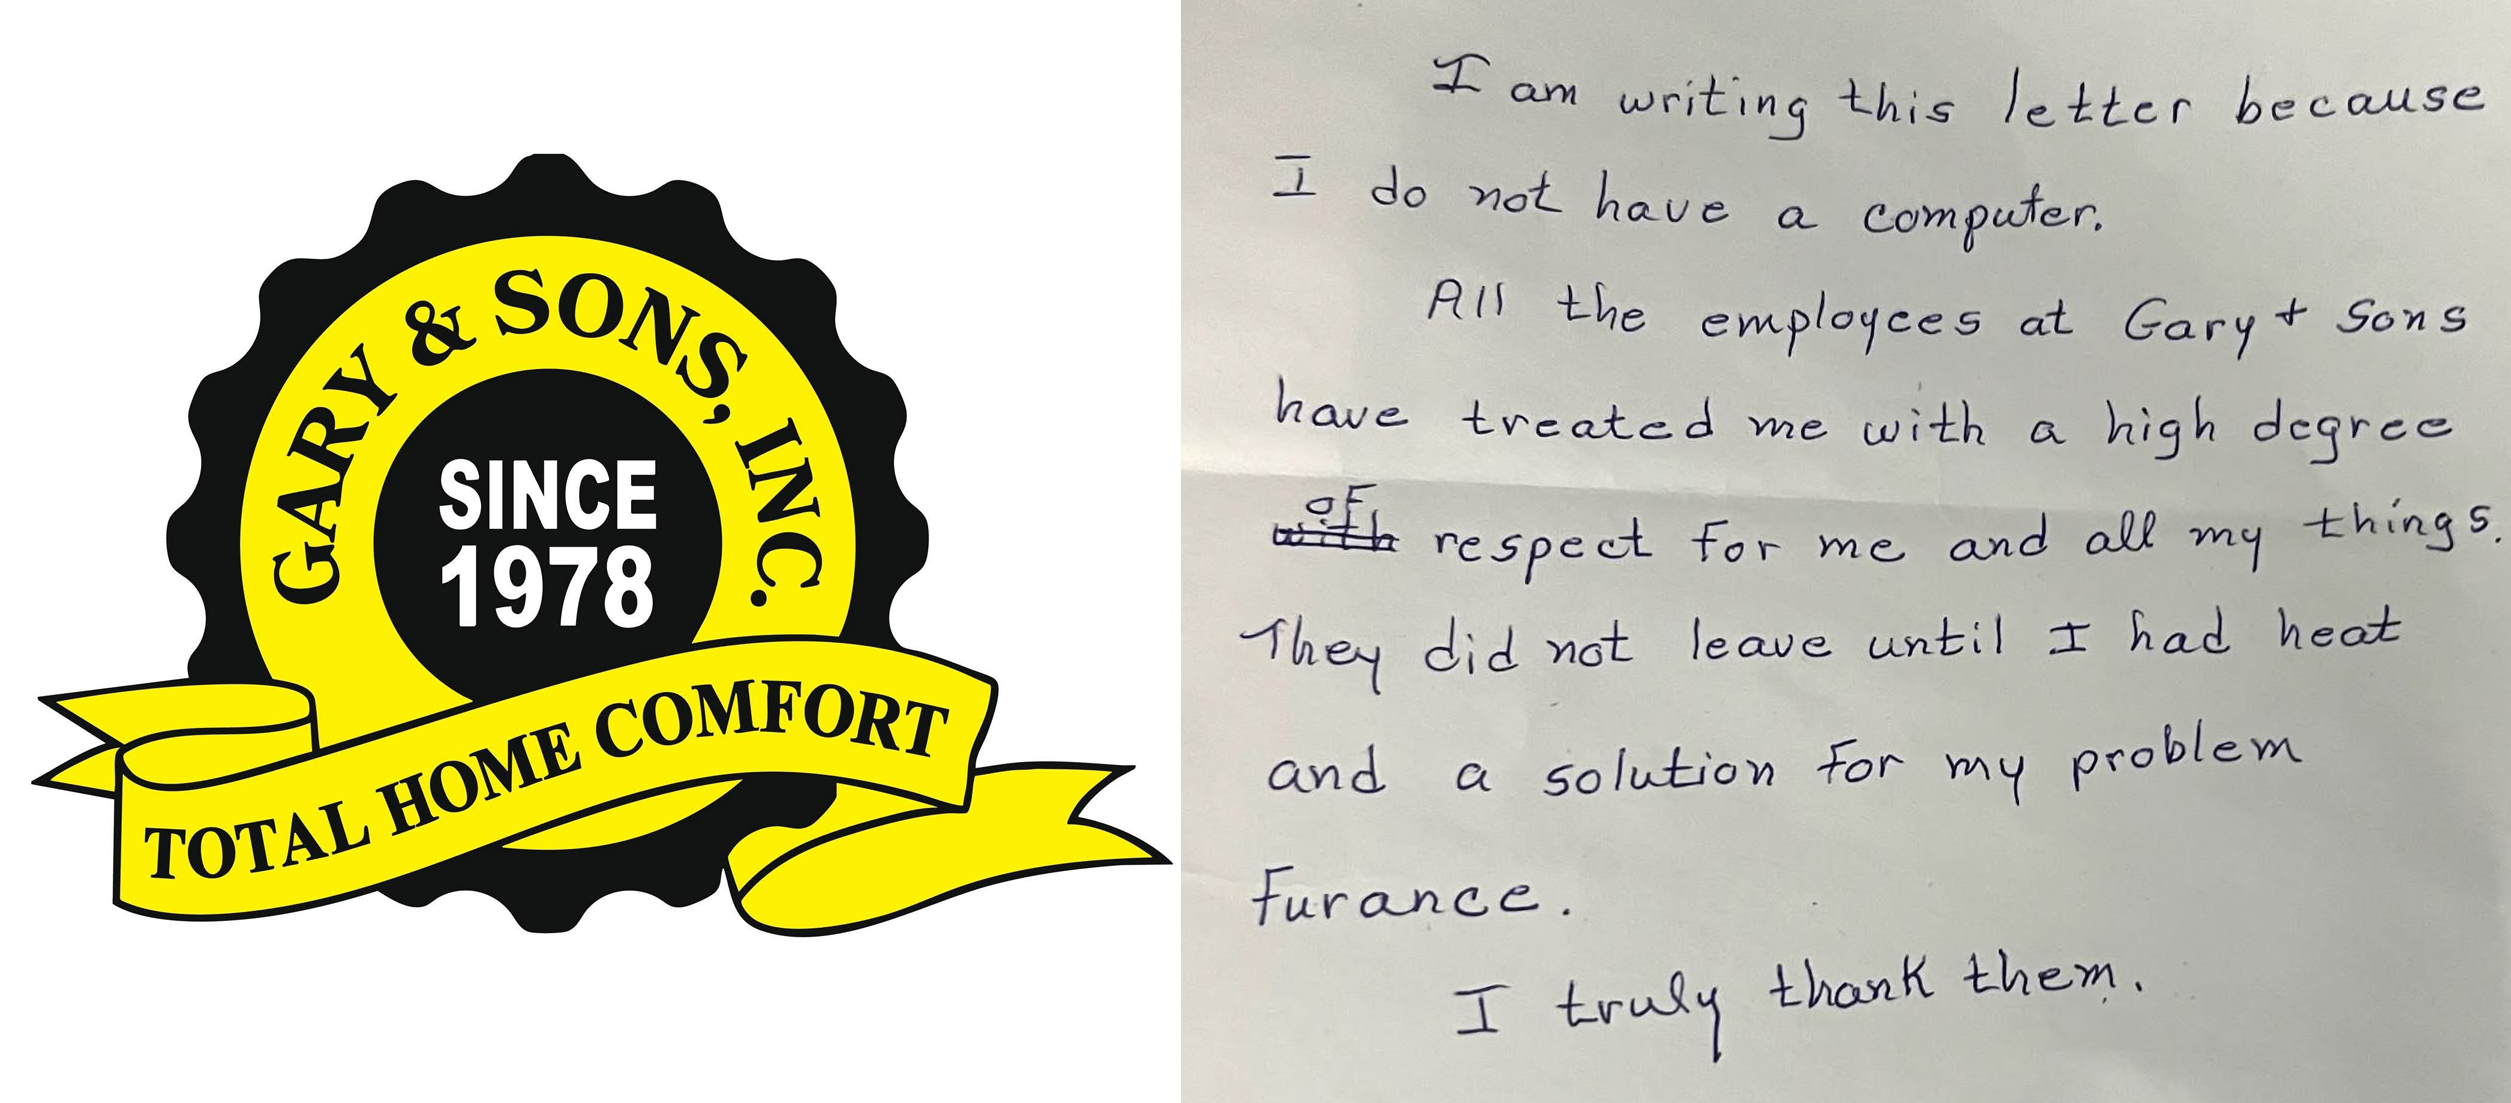 GARY & SONS, INC.
SINCE
1978
TOTAL HOME COMFORT
I am writing this letter because
I do not have a computer.
All the employees at Gary + Sons
have treated me with a high degree
of
with respect for me and all my things.
They did not leave until I had heat
and a solution for my problem
Furance.
I truly thank them.